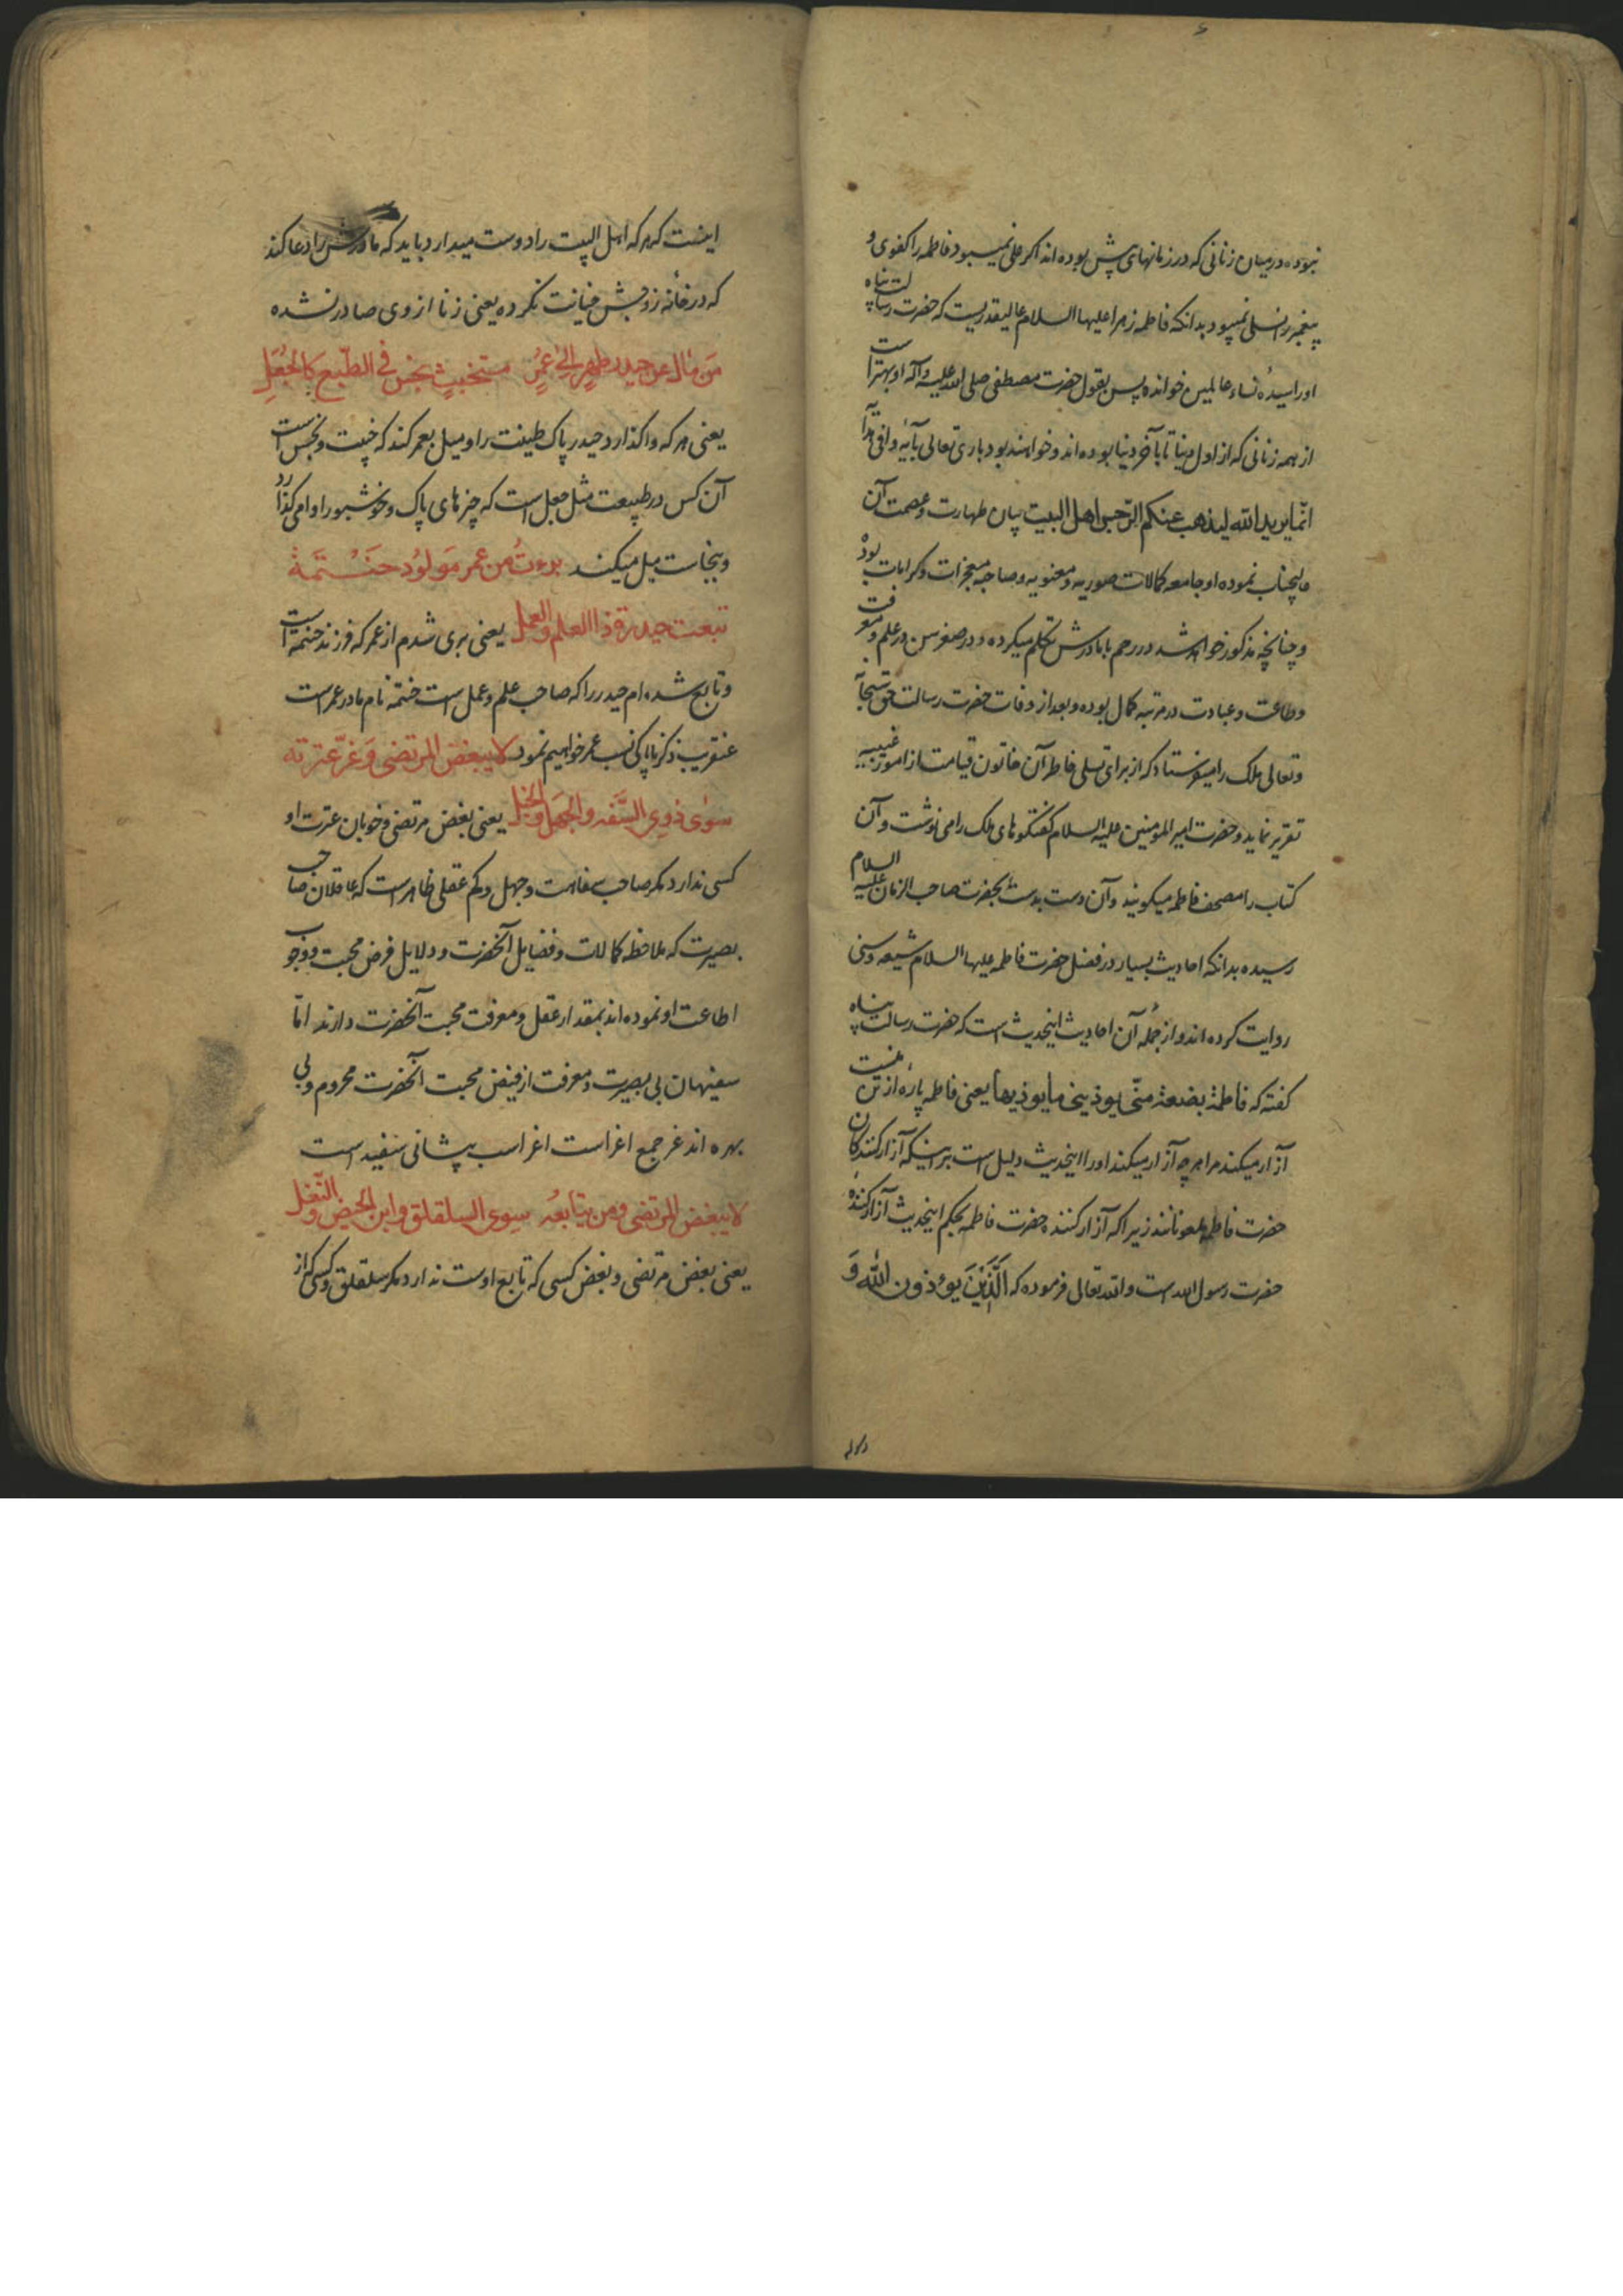 نبوده در میان زنانی که در زمانهای پیش بوده اند اکر علی نمیبود فاطمه را کفوی و
پیغمبر را نسلی نمیبود بدانکه فاطمه زهرا علیها السلام عالیقدریست که حضرت رسالت پناه
او را سیدهٔ نساء عالمین خوانده پس بقول حضرت مصطفی صلی الله علیه وآله او بهتر است
از همه زنانی که از اول دنیا تا بآخر دنیا بوده اند و خواهند بود باری تعالی بآیهٔ وافی هدایهٔ
انّما یرید الله لیذهب عنکم الرّجس اهل البیت بیان طهارت و عصمت آن
عالیجناب نموده او جامعه کمالات صوریه و معنویه و صاحبه معجزات و کرامات بوده
و چنانچه مذکور خواهد شد در رحم با مادرش تکلم میکرده و در صغر سن در علم و معرفت
و طاعت و عبادت در مرتبه کمال بوده و بعد از وفات حضرت رسالت حق سبحانه
و تعالی ملک را میفرستاد که از برای تسلی خاطر آن خاتون قیامت از امور غیبیه
تقریر نماید و حضرت امیر المؤمنین علیه السلام کفتکوهای ملک را می نوشت و آن
کتاب را مصحف فاطمه میکویند و آن دست بدست بحضرت صاحب الزمان علیه السلام
رسیده بدانکه احادیث بسیار در فضل حضرت فاطمه علیها السلام شیعه و سنی
روایت کرده اند و از جمله آن احادیث اینحدیث است که حضرت رسالت پناه
کفته که فاطمة بضعة منّی یوذینی ما یوذیها یعنی فاطمه پارهٔ از تن منست
آزار میکند مرا هر چه آزار میکند او را اینحدیث دلیل است بر اینکه آزار کنندکان
حضرت فاطمه ملعونانند زیرا که آزار کننده حضرت فاطمه بحکم اینحدیث آزار کنندهٔ
حضرت رسول الله است و الله تعالی فرموده که الَّذِینَ یوُذون الله وَ
اینست که هر که اهل البیت را دوست میدارد باید که مادرش را دعا کند
که در خانه زوجش خیانت نکرده یعنی زنا از وی صادر نشده
مَن مال عن حیدر طهرٍ الی عُمرٍ مستخبثٍ نجس فی الطّبع کالجُعَلِ
یعنی هر که واکذارد حیدر پاک طینت را و میل بعمر کند که خبیث و نجس است
آن کس در طبیعت مثل جعل است که چیزهای پاک و خوشبو را وامی کذارد
و بنجاست میل میکند برءتُ من عمر مَولُودِ حَنْتَمَة
تبعت حیدرة ذا العلم والعمل یعنی بری شدم از عمر که فرزند حنتمه است
و تابع شده ام حیدر را که صاحب علم و عمل است حنتمه نام مادر عمر است
عنقریب ذکر ناپاکی نسب عمر خواهیم نمود لا یبغض المرتضی وَ غرّ عترته
سوٰی ذوی السَّفه والجَهل والخبل یعنی بغض مرتضی و خوبان عترت او
کسی ندارد مکر صاحب سفاهت و جهل و کم عقلی ظاهر است که عاقلان صاحب
بصیرت که ملاحظه کمالات و فضایل آنحضرت و دلایل فرض محبت و وجوب
اطاعت او نموده اند بمقدار عقل و معرفت محبت آنحضرت دارند امّا
سفیهان بی بصیرت و معرفت از فیض محبت آنحضرت محروم و بی
بهره اند غر جمع اغر است اغر اسب پیشانی سفید است
لا یبغض المرتضی و من یتابعُه سوی السلقلق وابن الحیض والنّغل
یعنی بغض مرتضی و بغض کسی که تابع اوست ندارد مکر سلقلق و کسی که از